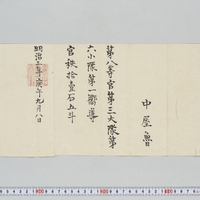 中屋魯
第八等官第三大隊第
六小隊第一嚮導
官秩拾壹石五斗
明治三年庚午九月八日